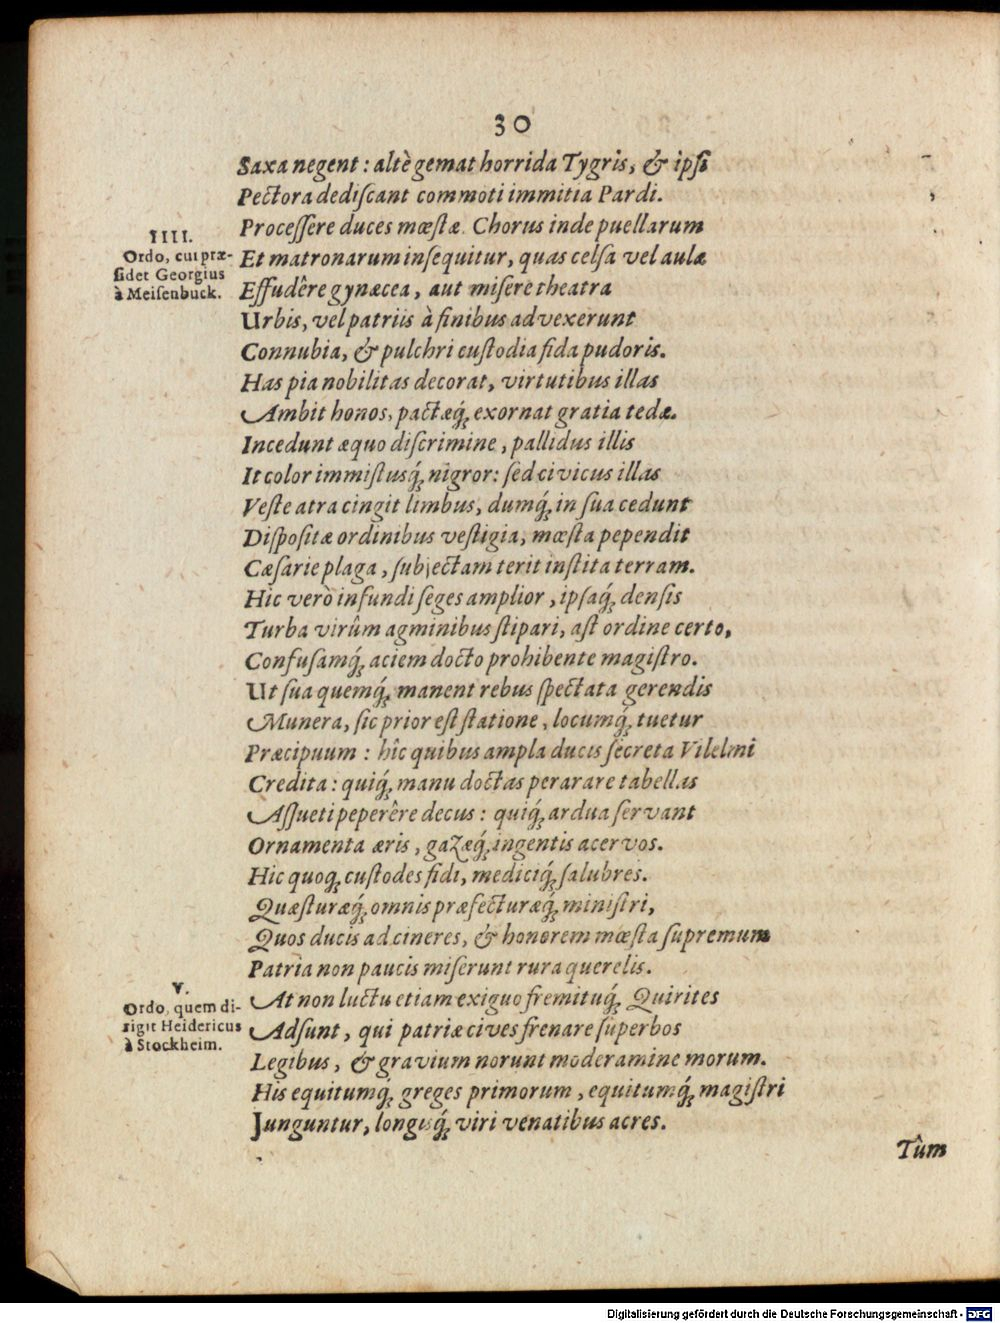 30
Saxa negent : altè gemat horrida Tygris, & ipsi
Pectora dediscant commoti immitia Pardi.
Processere duces mœstæ. Chorus inde puellarum
IIII.
Ordo, cui præ-
sidet Georgius
à Meisenbuck.
Et matronarum insequitur, quas celsa vel aulæ
Effudêre gynæcea, aut misere theatra
Urbis, vel patriis à finibus advexerunt
Connubia, & pulchri custodia fida pudoris.
Has pia nobilitas decorat, virtutibus illas
Ambit honos, pactæq́; exornat gratia tedæ.
Incedunt æquo discrimine, pallidus illis
It color immistusq́; nigror: sed civicus illas
Veste atra cingit limbus, dumq́; in sua cedunt
Dispositæ ordinibus vestigia, mœsta pependit
Cæsarie plaga, subjectam terit instita terram.
Hic verò infundi seges amplior, ipsaq́; densis
Turba virûm agminibus stipari, ast ordine certo,
Confusamq́; aciem docto prohibente magistro.
Ut sua quemq́; manent rebus spectata gerendis
Munera, sic prior est statione, locumq́; tuetur
Præcipuum : hîc quibus ampla ducis secreta Vilelmi
Credita : quiq́; manu doctas perarare tabellas
Assueti peperêre decus : quiq́; ardua servant
Ornamenta æris, gazæq́; ingentis acervos.
Hic quoq; custodes fidi, mediciq́; salubres.
Quæsturæq́; omnis præfecturæq́; ministri,
Quos ducis ad cineres, & honorem mœsta supremum
Patria non paucis miserunt rura querelis.
V.
Ordo, quem di-
rigit Heidericus
à Stockheim.
At non luctu etiam exiguo fremituq́; Quirites
Adsunt, qui patriæ cives frenare superbos
Legibus, & gravium norunt moderamine morum.
His equitumq́; greges primorum, equitumq́; magistri
Junguntur, longisq́; viri venatibus acres.
Tûm
Digitalisierung gefördert durch die Deutsche Forschungsgemeinschaft - DFG